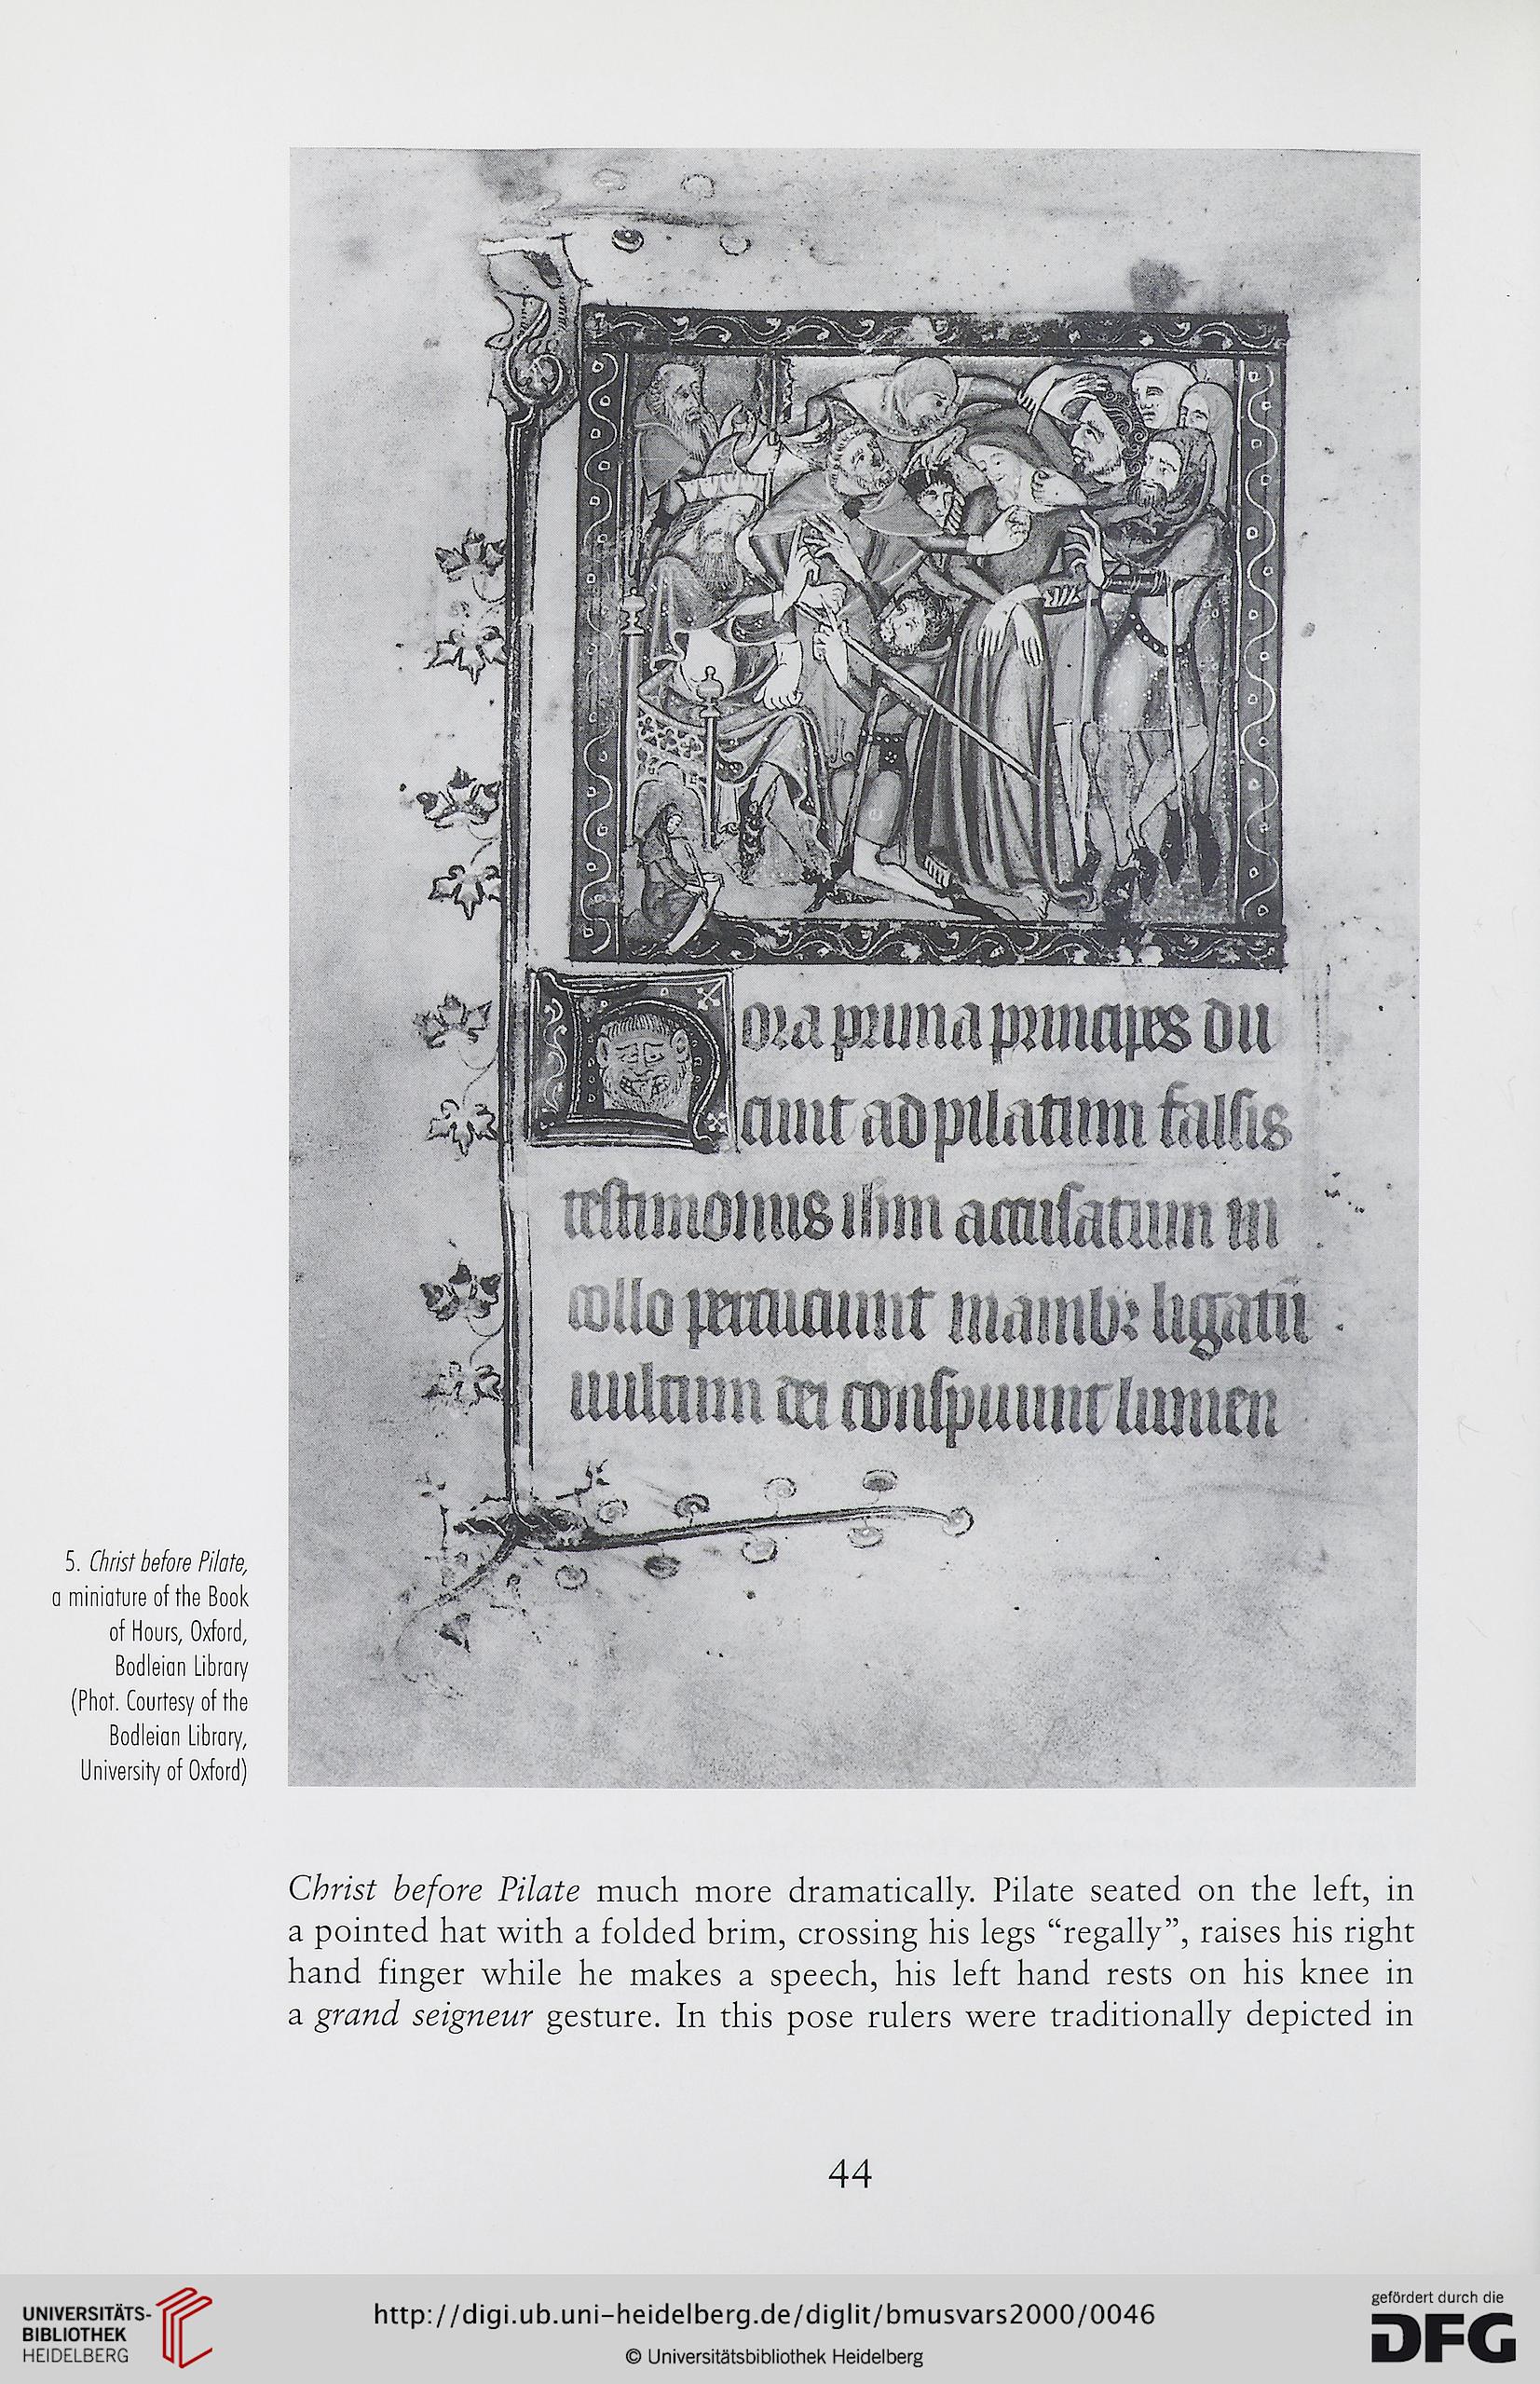 Hora prima principes du
cunt ad pilatum falsis
testimoniis ihm accusatum in
collo percuciunt manib; ligatū
uultum dei conspuunt lumen
5. Christ before Pilate,
a miniature of the Book
of Hours, Oxford,
Bodleian Library
(Phot. Courtesy of the
Bodleian Library,
University of Oxford)
Christ before Pilate much more dramatically. Pilate seated on the left, in
a pointed hat with a folded brim, crossing his legs “regally”, raises his right
hand finger while he makes a speech, his left hand rests on his knee in
a grand seigneur gesture. In this pose rulers were traditionally depicted in
44
UNIVERSITÄTS-
BIBLIOTHEK
HEIDELBERG
http://digi.ub.uni-heidelberg.de/diglit/bmusvars2000/0046
© Universitätsbibliothek Heidelberg
gefördert durch die
DFG